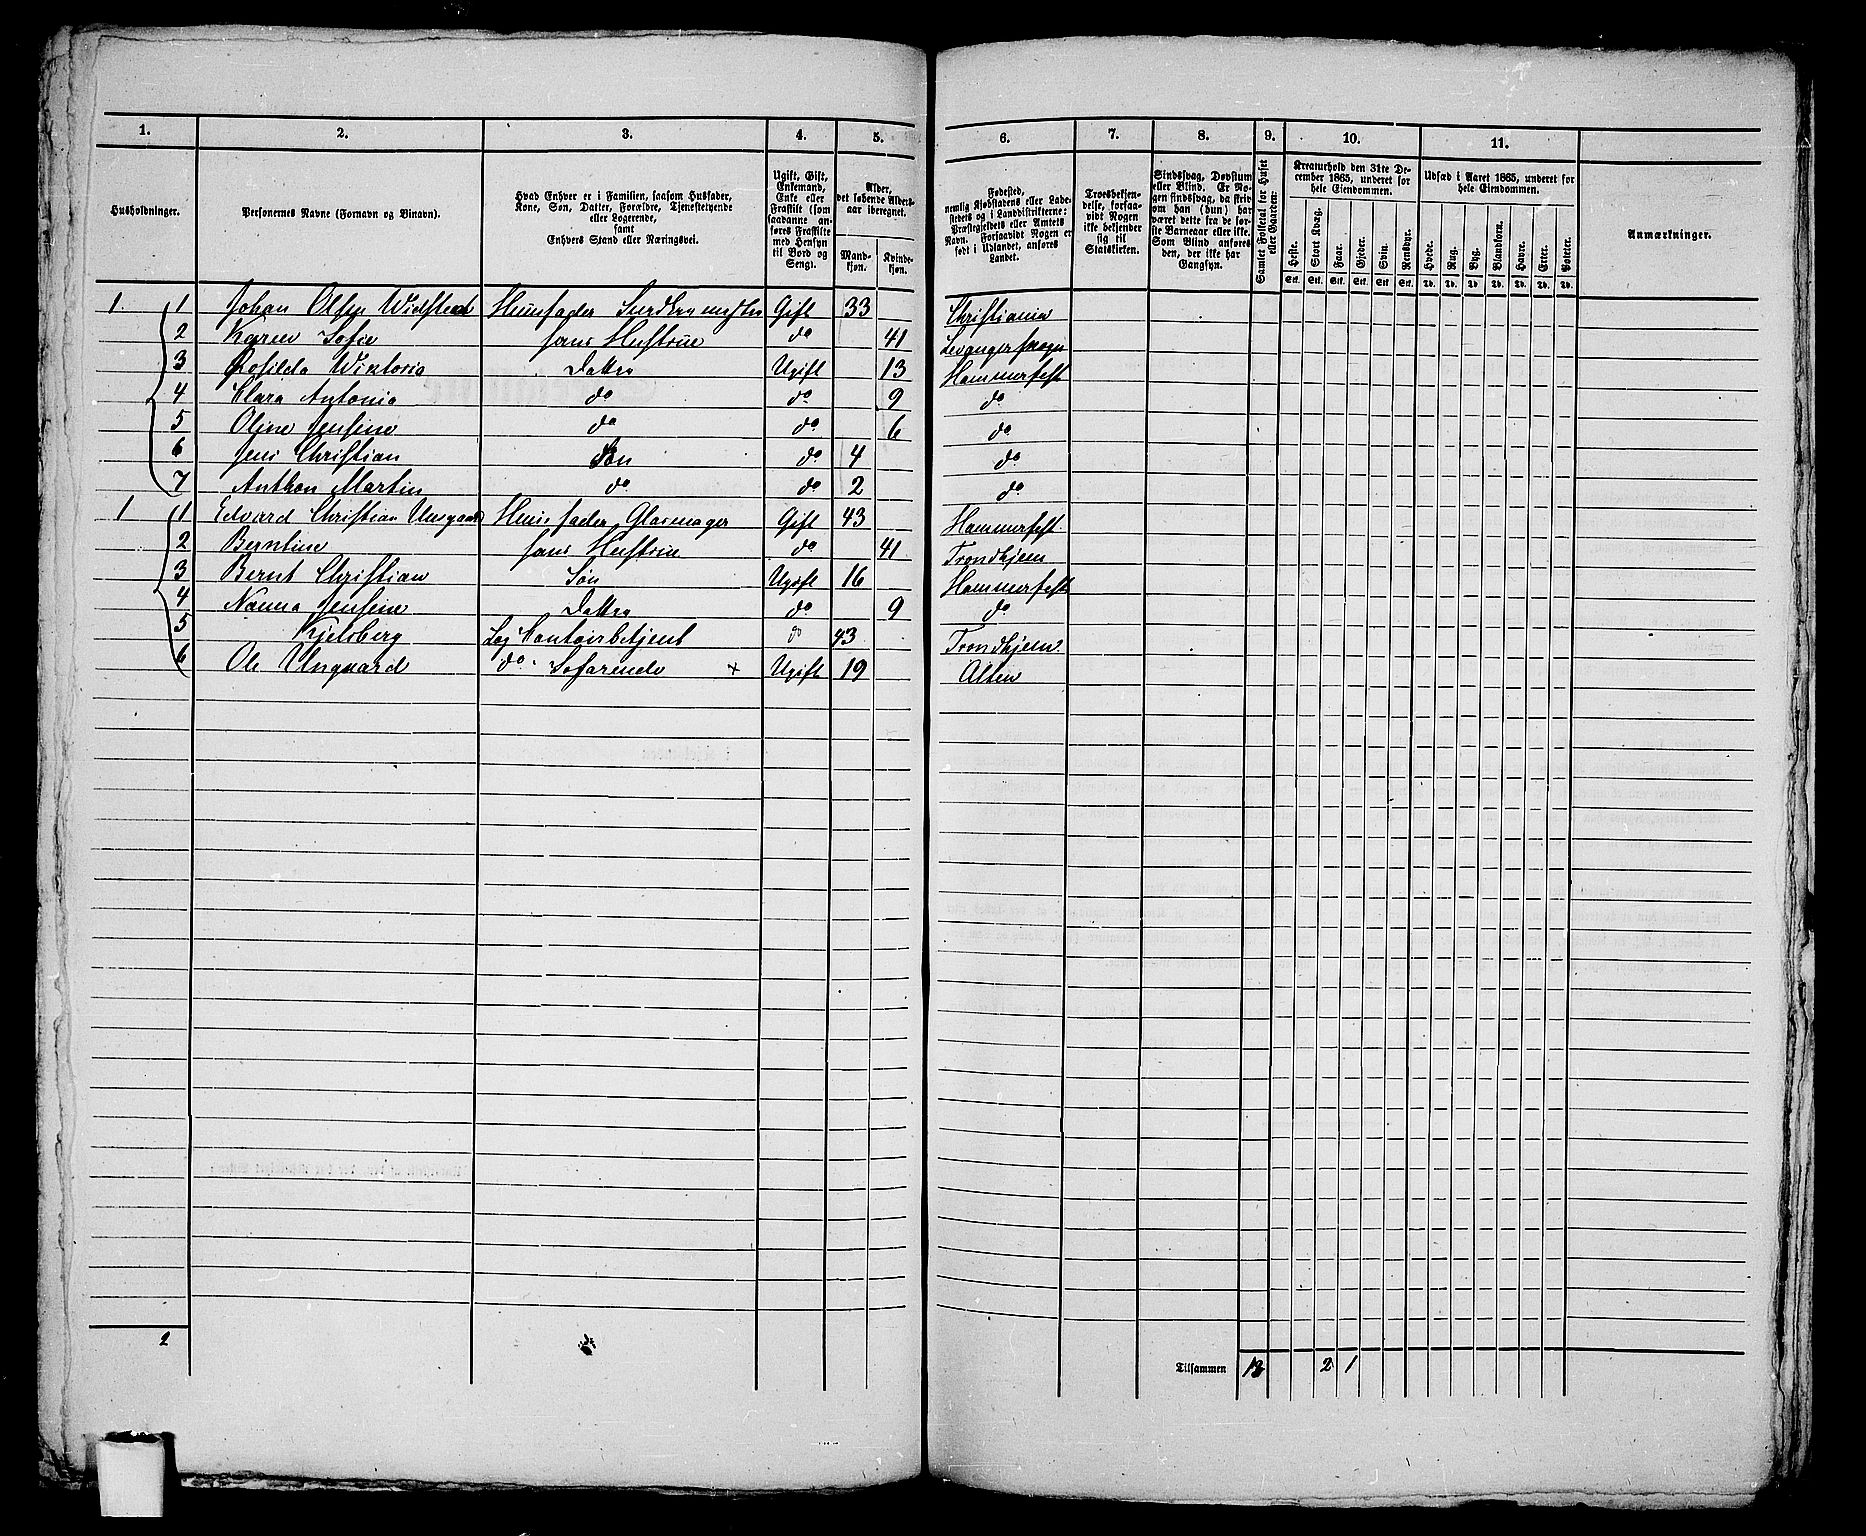 1. 2. 3. 4. 5. 6. 7. 8. 9. 10. 11.
Husholdninger.
Personernes Navne (Fornavn og Binavn).
Hvad Enhver er i Familien, saasom Husfader,
Kone, Søn, Datter, Forældre, Tjenestetyende
eller Logerende,
samt
Enhvers Stand eller Næringsvei.
Ugift, Gift,
Enkemand,
Enke eller
Fraskilt (som
saadanne anføres Fraskilte
med Hensyn
til Bord og
Seng).
Alder,
det løbende Aldersaar iberegnet.
Mandkjøn.
Kvindekjøn.
Fødested,
nemlig Kjøbstadens eller Ladestedets og i Landdistrikterne:
Præstegjeldets eller Amtets
Navn. Forsaavidt Nogen er
født i Udlandet, anføres
Landet.
Troesbekjendelse, forsaavidt Nogen
ikke bekjender
sig til
Statskirken.
Sindssvag, Døvstum
eller Blind. Er Nogen sindssvag, da skrives om han (hun) har
været dette fra de første Barneaar eller ikke.
Som Blind anføres
den, der ikke har
Gangsyn.
Samlet Folketal for Huset
eller Gaarden:
Kreaturhold den 31te December 1865, underet for
hele Eiendommen.
Heste. Stort Kvæg. Faar. Gjeder. Svin. Rensdyr.
Stk. Stk. Stk. Stk. Stk. Stk.
Udsæd i Aaret 1865, underet for
hele Eiendommen.
Hvede. Rug. Byg. Blandkorn. Havre. Erter. Poteter.
Td. Td. Td. Td. Td. Td. Td.
Anmærkninger.
1. 1 Johan Olsen Huusfader Gift 33 Christiania
2 Karen Sofie hans Hustrue do 41
3 Rosilda Wiktoria Datter Ugift 13 Hammerfest
4 Clara Antonia do do 9 do
5 Oline Jensine do do 6 do
6 Jens Christian Søn do 4 do
7 Anthon Martin do do 2 do
1 1 Edvard Christian Unsgaard Huusfader Glasmager Gift 43 Hammerfest
2 Berntine hans Hustrue do 41 Trondhjem
3 Bernt Christian Søn Ugift 16 Hammerfest
4 Nanna Jensine Datter do 9 do
5 Kjelsberg Log. Contoirbetjent do 43 Trondhjem
6 Ole Unsgaard do Søfarende + Ugift 19 Alten
2
Tilsammen 13 2 1